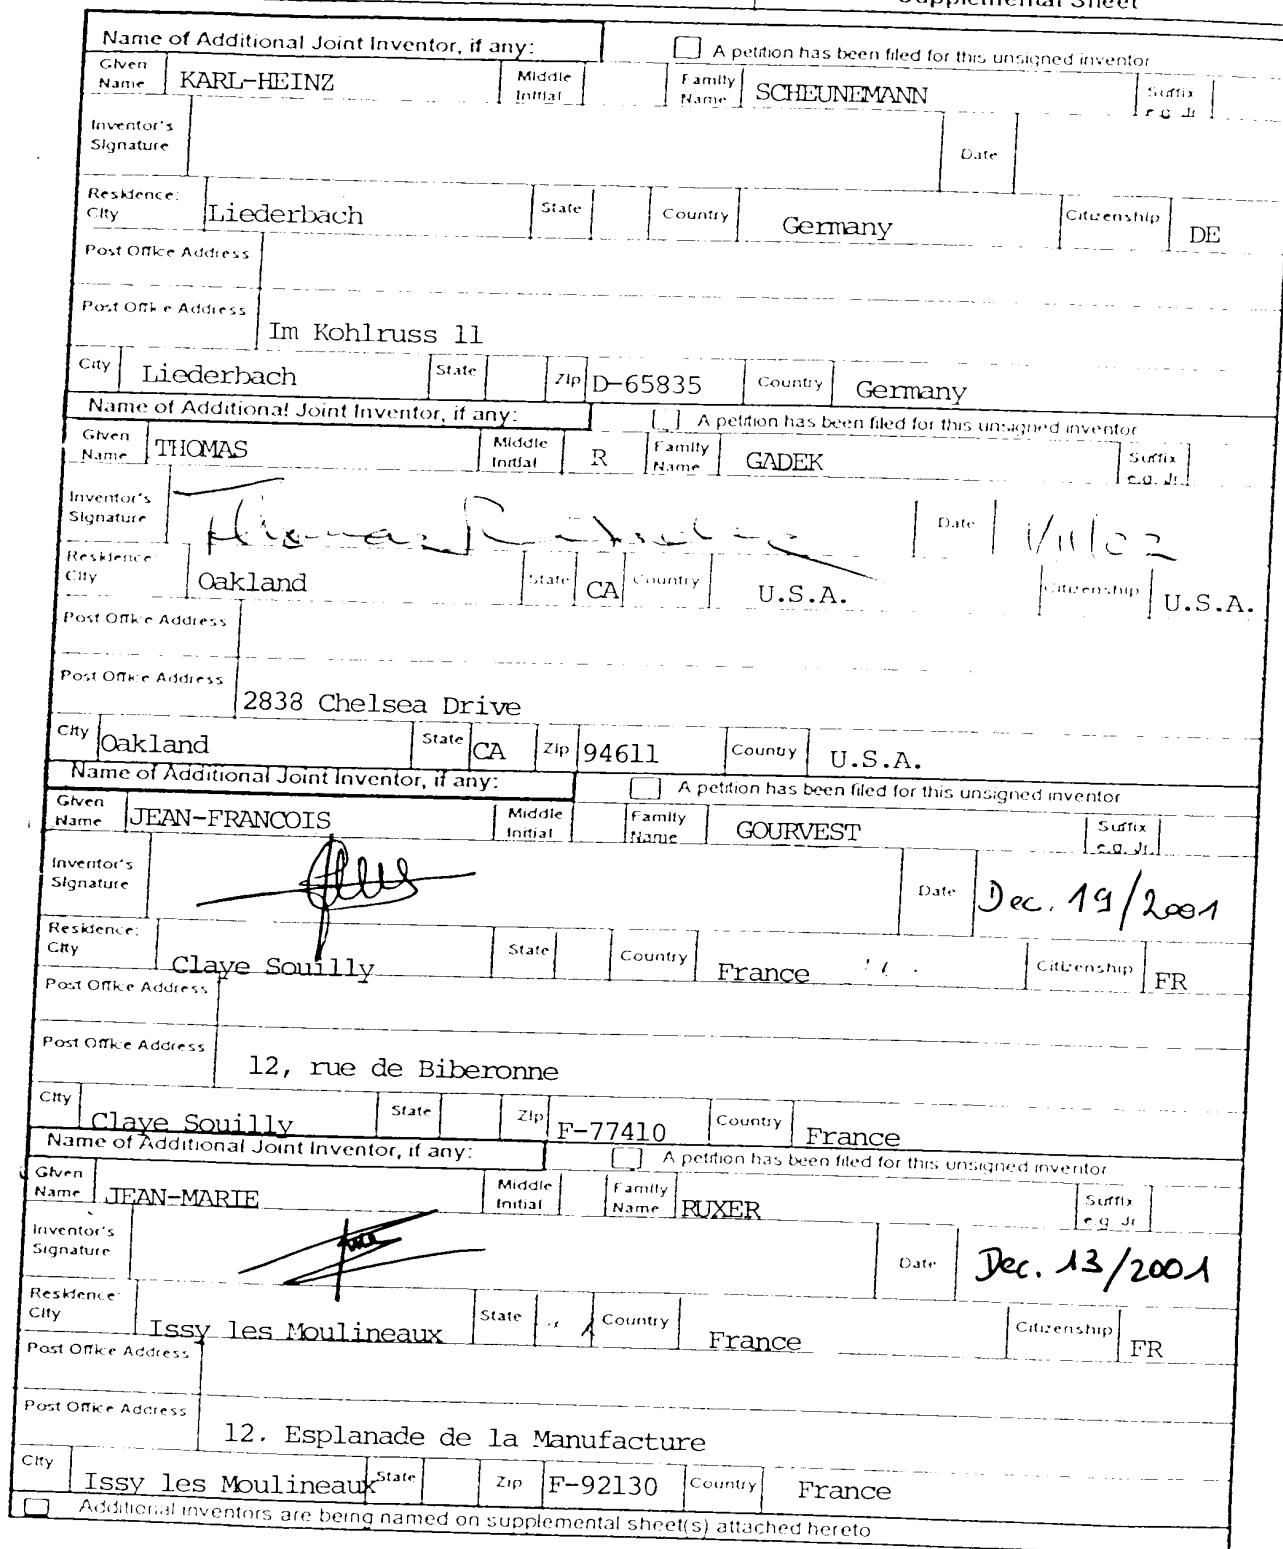 Supplemental Sheet
Name of Additional Joint Inventor, if any: A petition has been filed for this unsigned inventor
Given Name KARL-HEINZ Middle Initial Family Name SCHEUNEMANN Suffix e.g. Jr.
Inventor's Signature Date
Residence: City Liederbach State Country Germany Citizenship DE
Post Office Address
Post Office Address Im Kohlruss 11
City Liederbach State Zip D-65835 Country Germany
Name of Additional Joint Inventor, if any: A petition has been filed for this unsigned inventor
Given Name THOMAS Middle Initial R Family Name GADEK Suffix e.g. Jr.
Inventor's Signature Thomas Date 1/11/02
Residence: City Oakland State CA Country U.S.A. Citizenship U.S.A.
Post Office Address
Post Office Address 2838 Chelsea Drive
City Oakland State CA Zip 94611 Country U.S.A.
Name of Additional Joint Inventor, if any: A petition has been filed for this unsigned inventor
Given Name JEAN-FRANCOIS Middle Initial Family Name GOURVEST Suffix e.g. Jr.
Inventor's Signature Date Dec. 19/2001
Residence: City Claye Souilly State Country France Citizenship FR
Post Office Address
Post Office Address 12, rue de Biberonne
City Claye Souilly State Zip F-77410 Country France
Name of Additional Joint Inventor, if any: A petition has been filed for this unsigned inventor
Given Name JEAN-MARIE Middle Initial Family Name RUXER Suffix e.g. Jr
Inventor's Signature Date Dec. 13/2001
Residence: City Issy les Moulineaux State Country France Citizenship FR
Post Office Address
Post Office Address 12. Esplanade de la Manufacture
City Issy les Moulineaux State Zip F-92130 Country France
Additional inventors are being named on supplemental sheet(s) attached hereto